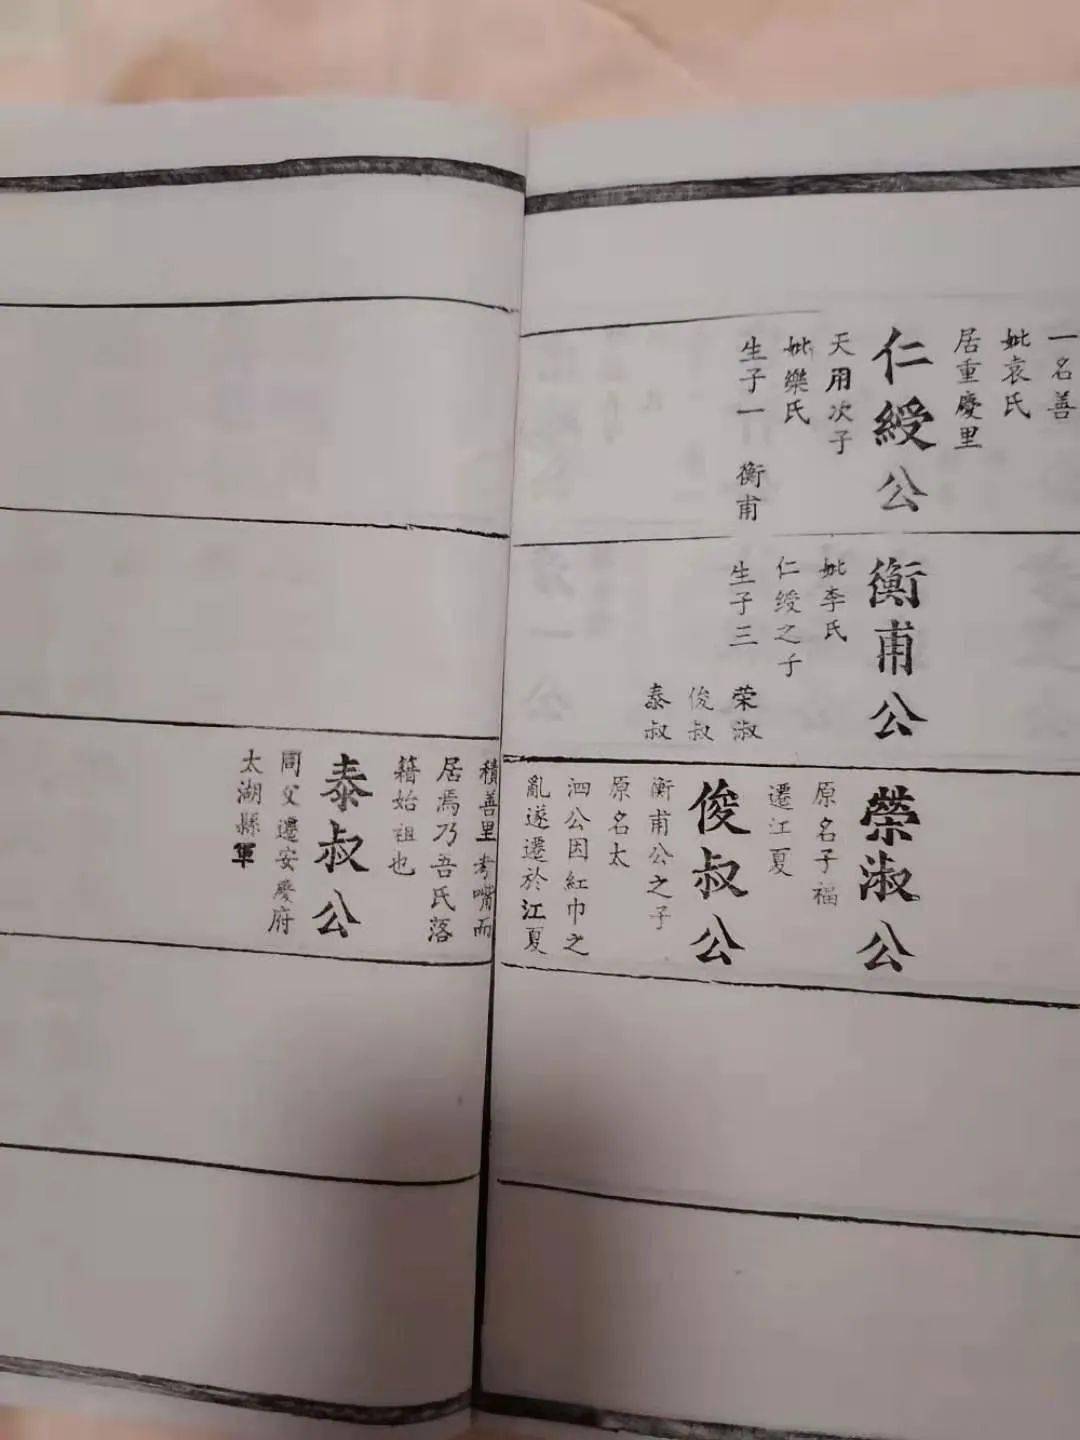 一名善
妣袁氏
居重慶里
仁綬公
天用次子
妣樂氏
生子一 衡甫
衡甫公
妣李氏
仁綬之子
生子三
荣淑
俊叔
泰叔
荣淑公
原名子福
遷江夏
俊叔公
衡甫公之子
原名太
泗公因紅巾之
亂遂遷於江夏
積善里考嘴而
居焉乃吾氏落
籍始祖也
泰叔公
同父遷安慶府
太湖縣軍